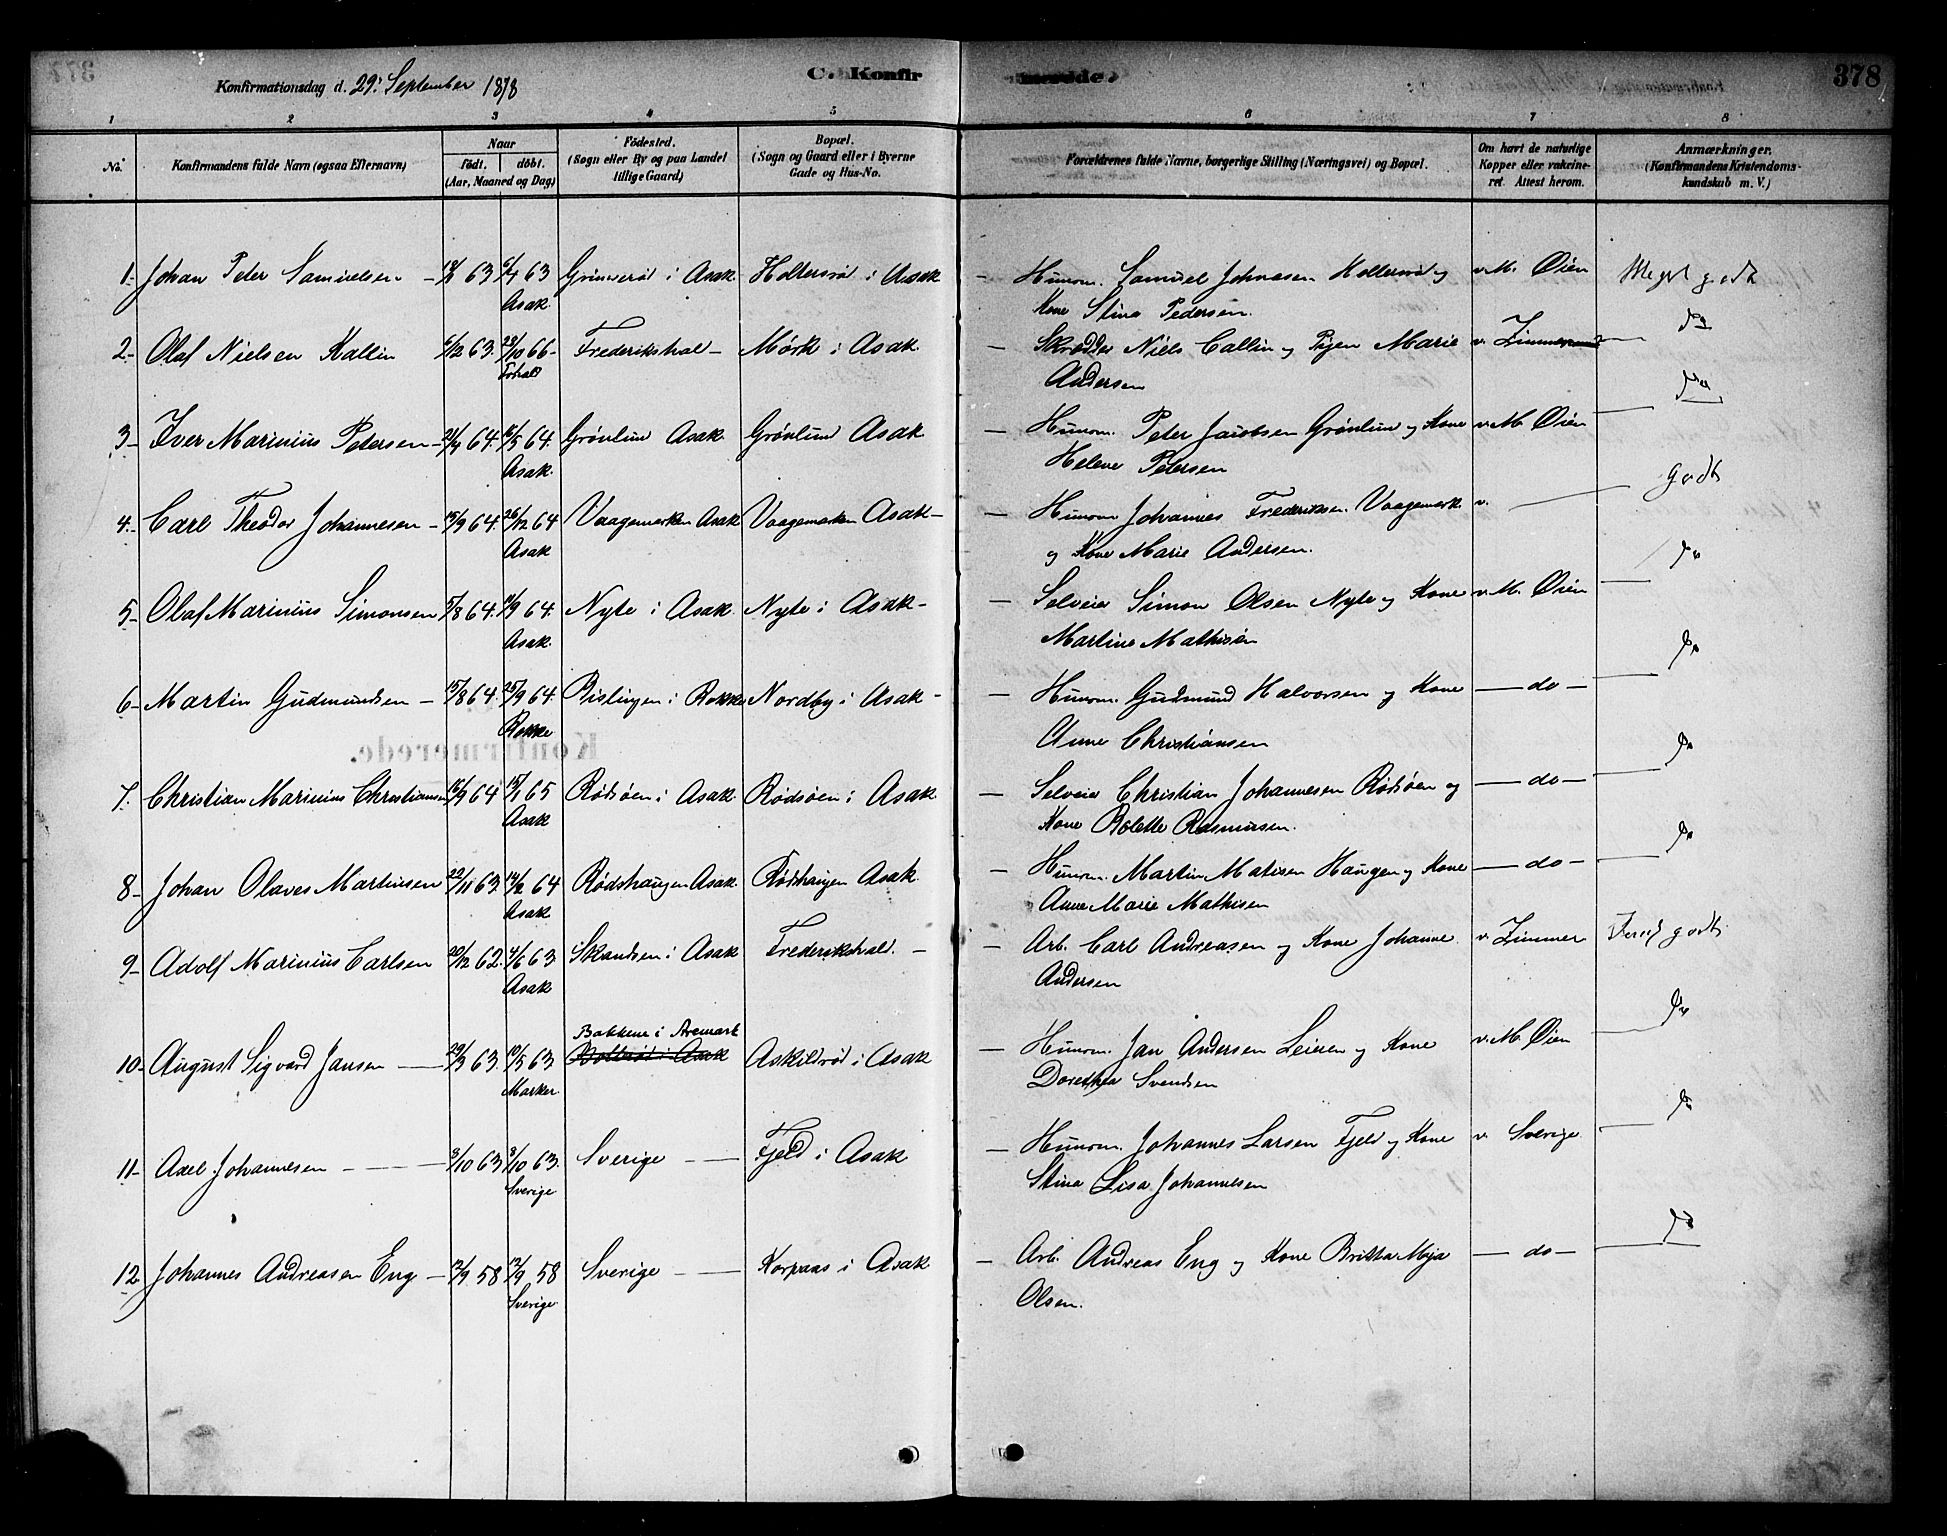 Konfirmationsdag d. 29: September 1878
C. Konfirmerede.
378
1 2 3 4 5 6 7 8
No.
Konfirmandens fulde Navn (ogsaa Efternavn)
Naar
födt. döbt.
(Aar, Maaned og Dag)
Födested.
(Sogn eller By og paa Landet
tillige Gaard)
Bopæl.
(Sogn og Gaard eller i Byerne
Gade og Hus-No.
Forældrenes fulde Navne, borgerlige Stilling (Næringsvei) og Bopæl.
Om havt de naturlige
Kopper eller vakcine-
ret. Attest herom.
Anmærkninger,
(Konfirmandens Kristendoms-
kundskab m. V.)
1- Johan Peter Samuelsen - 63 6/4 63 i Asak Holtersrød i Asak - Husm. Samuel Johnasen Holtersrød og v. M. Øien Meget godt
Asak. Kone Stina Pedersen.
2- Olaf Nielsen Kallin 6/12 63. 28/10 66- Frederikshal - Mørk i Asak. - Skrædder Niels Callin og Pigen Marie v. Zimmer do
Frhald Andersen
3- Iver Marinius Petersen - 21/4 64. 16/5 64. Grønlun Asak. Grønlund Asak - Husm. Peter Jacobsen Grønlun og Kone v. M. Øien do
Asak. Helene Petersen
4- Carl Theodor Johannesen - 15/9 64. 26/12 64 Vaagemarken Asak Vaagemarken Asak - - Husm Johannes Frederiksen Vaagemark v. Godt
Asak og Kone Marie Andersen.
5- Olaf Marinius Simonsen 5/8 64. 11/9 64. Nyte i Asak. Nyte i Asak - - Selveier Simon Olsen Nyte og Kone v. M. Øien do
Asak. Martine Mathisen
6- Martin Gudmundsen - 15/8 64. 25/9 64. Bislingen i Rokke Nordby i Asak - - Husm. Gudmund Halvorsen og Kone - do - do
Rokke Anne Christiansen
7. Christian Marinius Christiansen 16/9 64 15/1 65 Rødsøen i Asak. Rødsøen i Asak - Selveier Christian Johannesen Rødsøen og - do - do
Asak Kone Bolette Rasmusen.
8- Johan Olaves Martinsen 22/11 63. 14/2 64 Rødshaugen Asak. Rødshaugen Asak. - Husm. Martin Matisen Haugen og Kone - do - do
Asak Anne Marie Mathisen
9- Adolf Marinius Carlsen 20/12 62. 4/6 63 Skandsen i Asak Frederikshald. - - Arb. Carl Andreasen og Kone Johanne v. Zimmer Temg godt
Asak Andersen
Bakkene i Aremark
10- August Sigvard Jansen - 29/3 63. 10/5 63 Askildrød i Asak - Husm. Jan Andersen Leiren og Kone v. M. Øien do
Marker Dorethea Svendsen
11- Axel Johannesen - - - 3/10 63 8/10 63. Sverige - Fjeld i Asak - Husm. Johannes Larsen Fjeld og Kone v. Sverige do
Sverige Stina Lisa Johannesen
12 Johannes Andreasen Eng - 12/9. 58 12/9. 58 Sverige - Korpaas i Asak - Arb. Andreas Eng og Kone Britta Maja - do - do
Sverige Olsen.